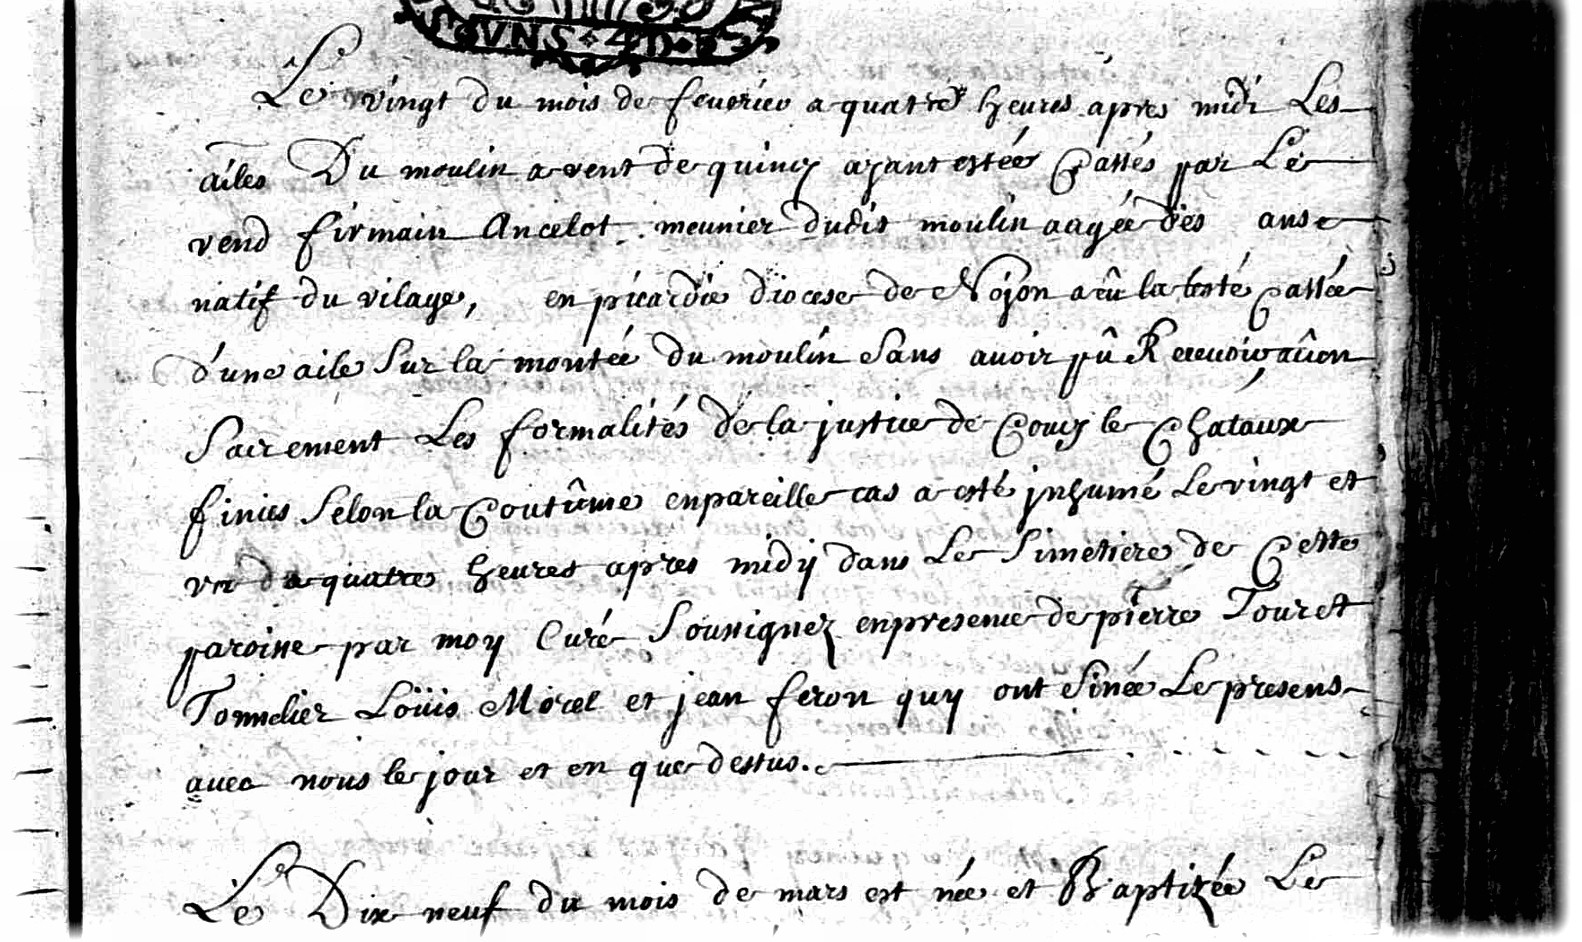 VNS 4D
Le vingt du mois de feuerier a quatre heures apres midi Les
ailes Du moulin a vent de quincy ayant estée Cassés par Le
vend firmain Ancelot meunier dudit moulin aagée des ans
natif du vilage, en picardie diocese de Noyon a eû la testé Cassée
d'une aile Sur la montée du moulin Sans auoir pû Receuoir aucun
Sacrement Les formalités de la justice de Coucy le Chataux
finies Selon la Coutûme en pareille cas a esté jnhumé Le vingt et
vn a quatre heures apres midy dans Le Simetiere de Cette
paroisse par moy Curé Soussignez en presence de pierre Touret
Tonnelier Loüis Morel et jean feron quy ont Sinée Le presens
auec nous le jour et en que dessus.
Le Dix neuf du mois de mars est née et Baptizée Le